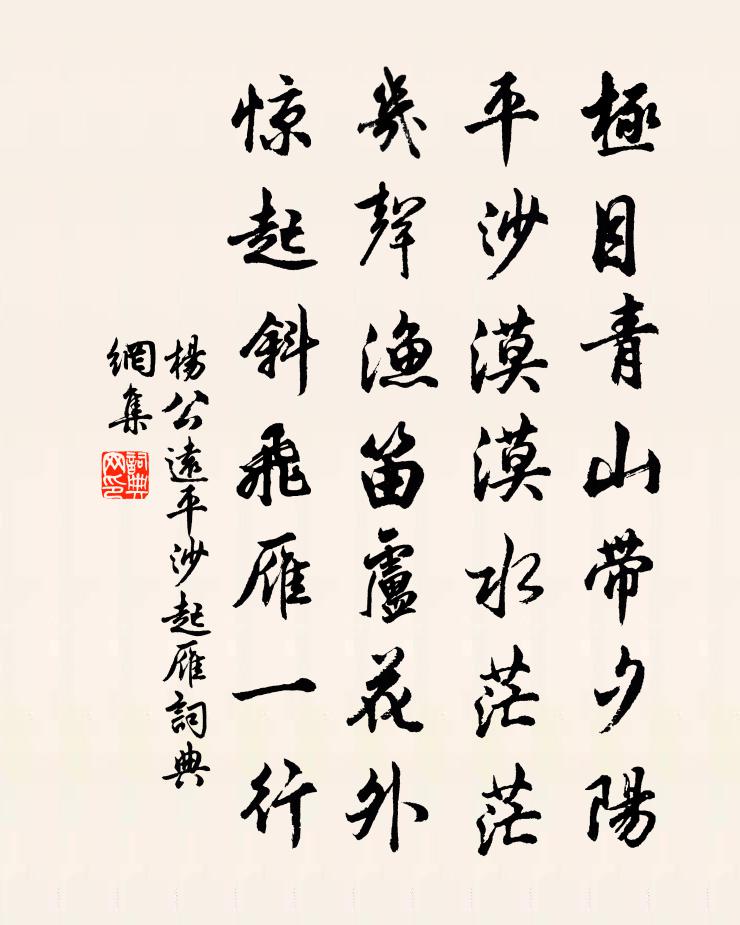 極目青山帶夕陽
平沙漠漠水茫茫
幾聲漁笛盧花外
惊起斜飛雁一行
楊公遠平沙起雁詞典
網集
詞典
网印